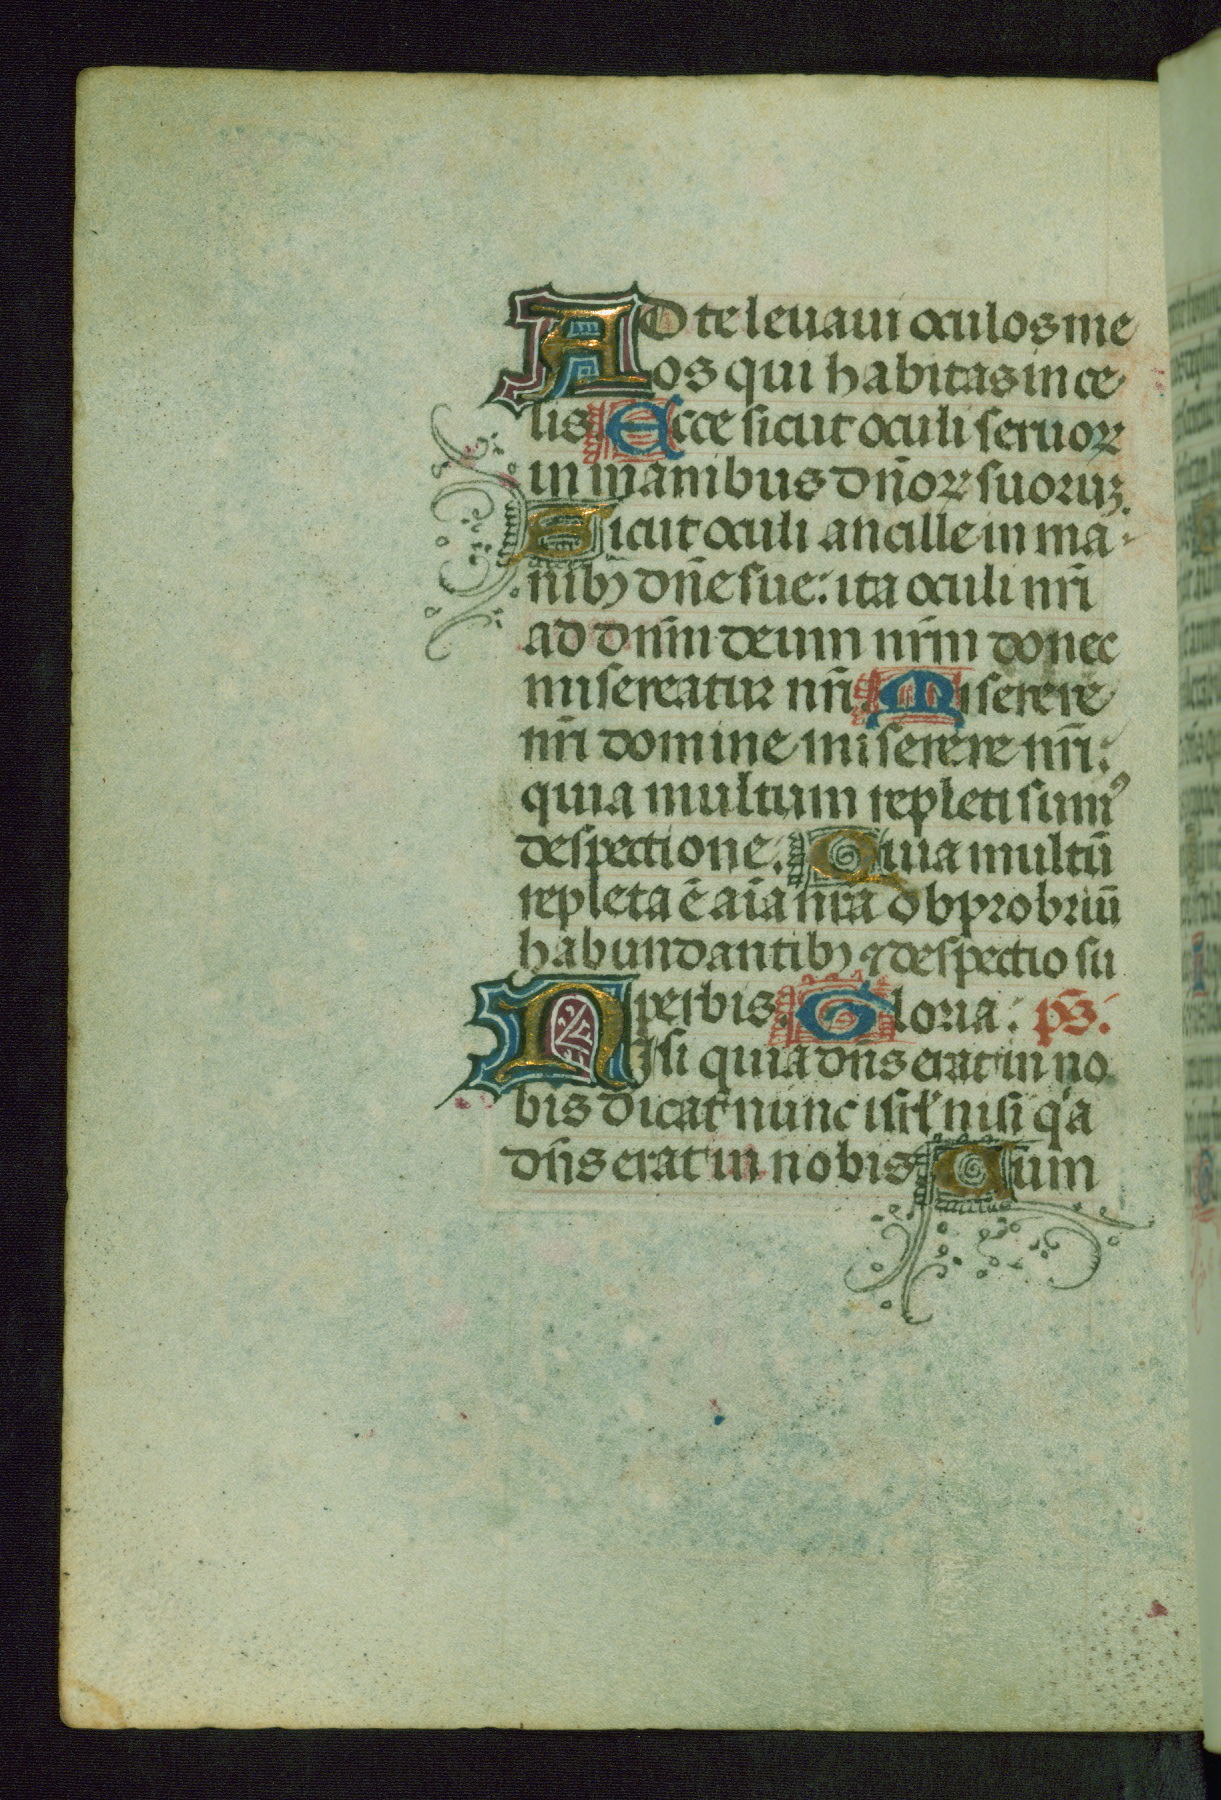 AD te levaui oculos me
os qui habitas in ce
lis. Ecce sicut oculi seruoꝝ
in manibus dn̄oꝝ suoruꝫ.
Sicut oculi ancille in ma-
nibꝫ dn̄e sue: ita oculi nr̄i
ad dn̄m deum nr̄m donec
misereatur nr̄i. Miserere
nr̄i domine miserere nr̄i:
quia multum repleti sumꝰ
despectione. Quia multū
repleta ē aīa nr̄a obprobriū
habundantibꝫ ⁊ despectio su
perbis. Gloria: ps̄.
Nisi quia dn̄s erat in no
bis dicat nunc isrl̄ nisi qͥa
dn̄s erat in nobis. Cum